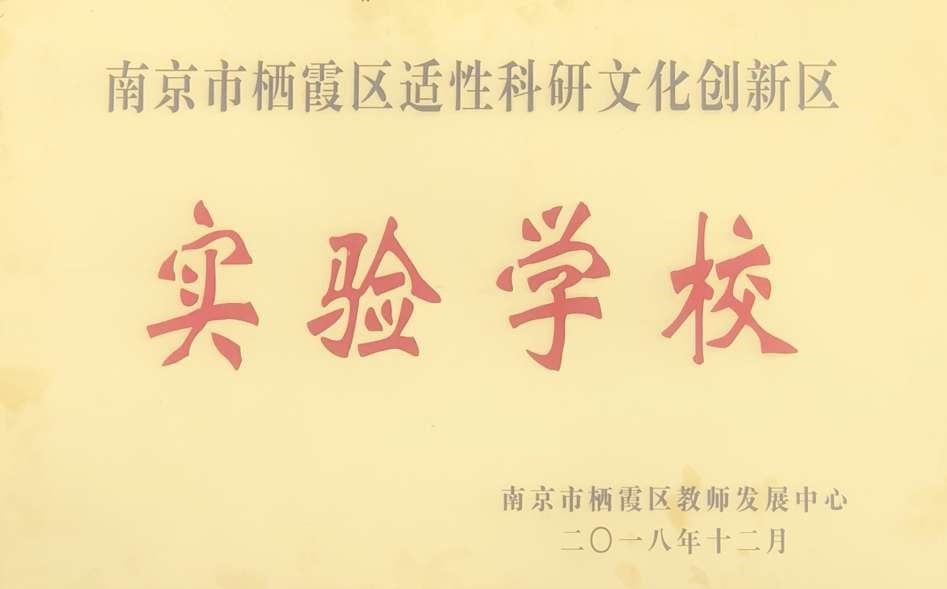 南京市栖霞区适性科研文化创新区
实验学校
南京市栖霞区教师发展中心
二〇一八年十二月